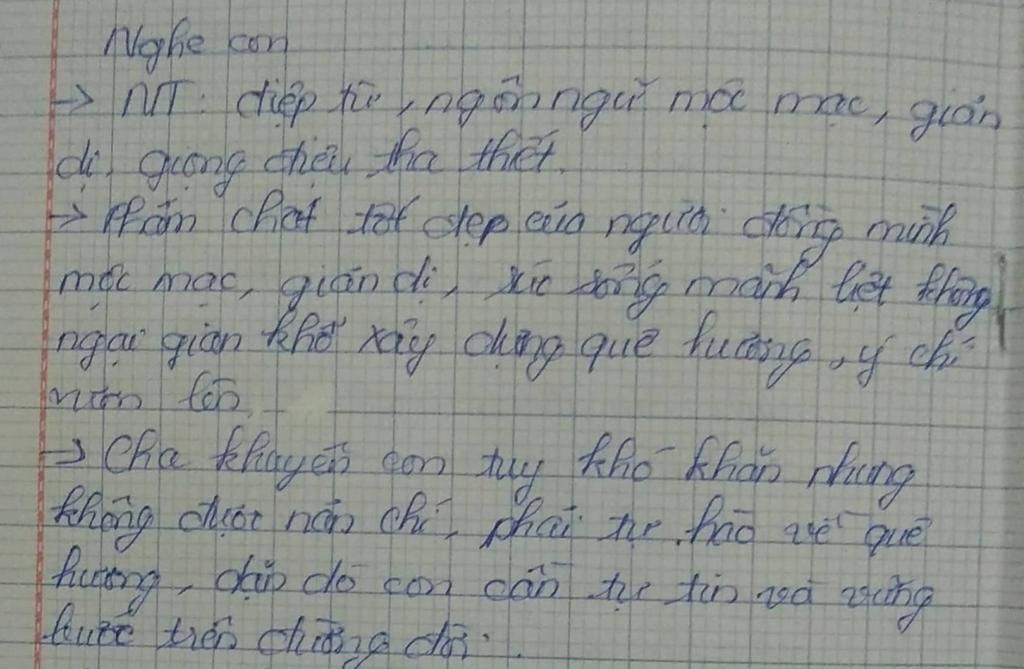 Nghe con
→ NT: điệp từ, ngôn ngữ mộc mạc, giản
dị, giọng điệu tha thiết.
→ Phẩm chất tốt đẹp của người đồng mình
mộc mạc, giản dị, sức sống mãnh liệt không
ngại gian khổ xây dựng quê hương, ý chí
vươn lên.
→ Cha khuyên con tuy khó khăn nhưng
không được nản chí, phải tự hào về quê
hương, dặn dò con cần tự tin và vững
bước trên đường đời.